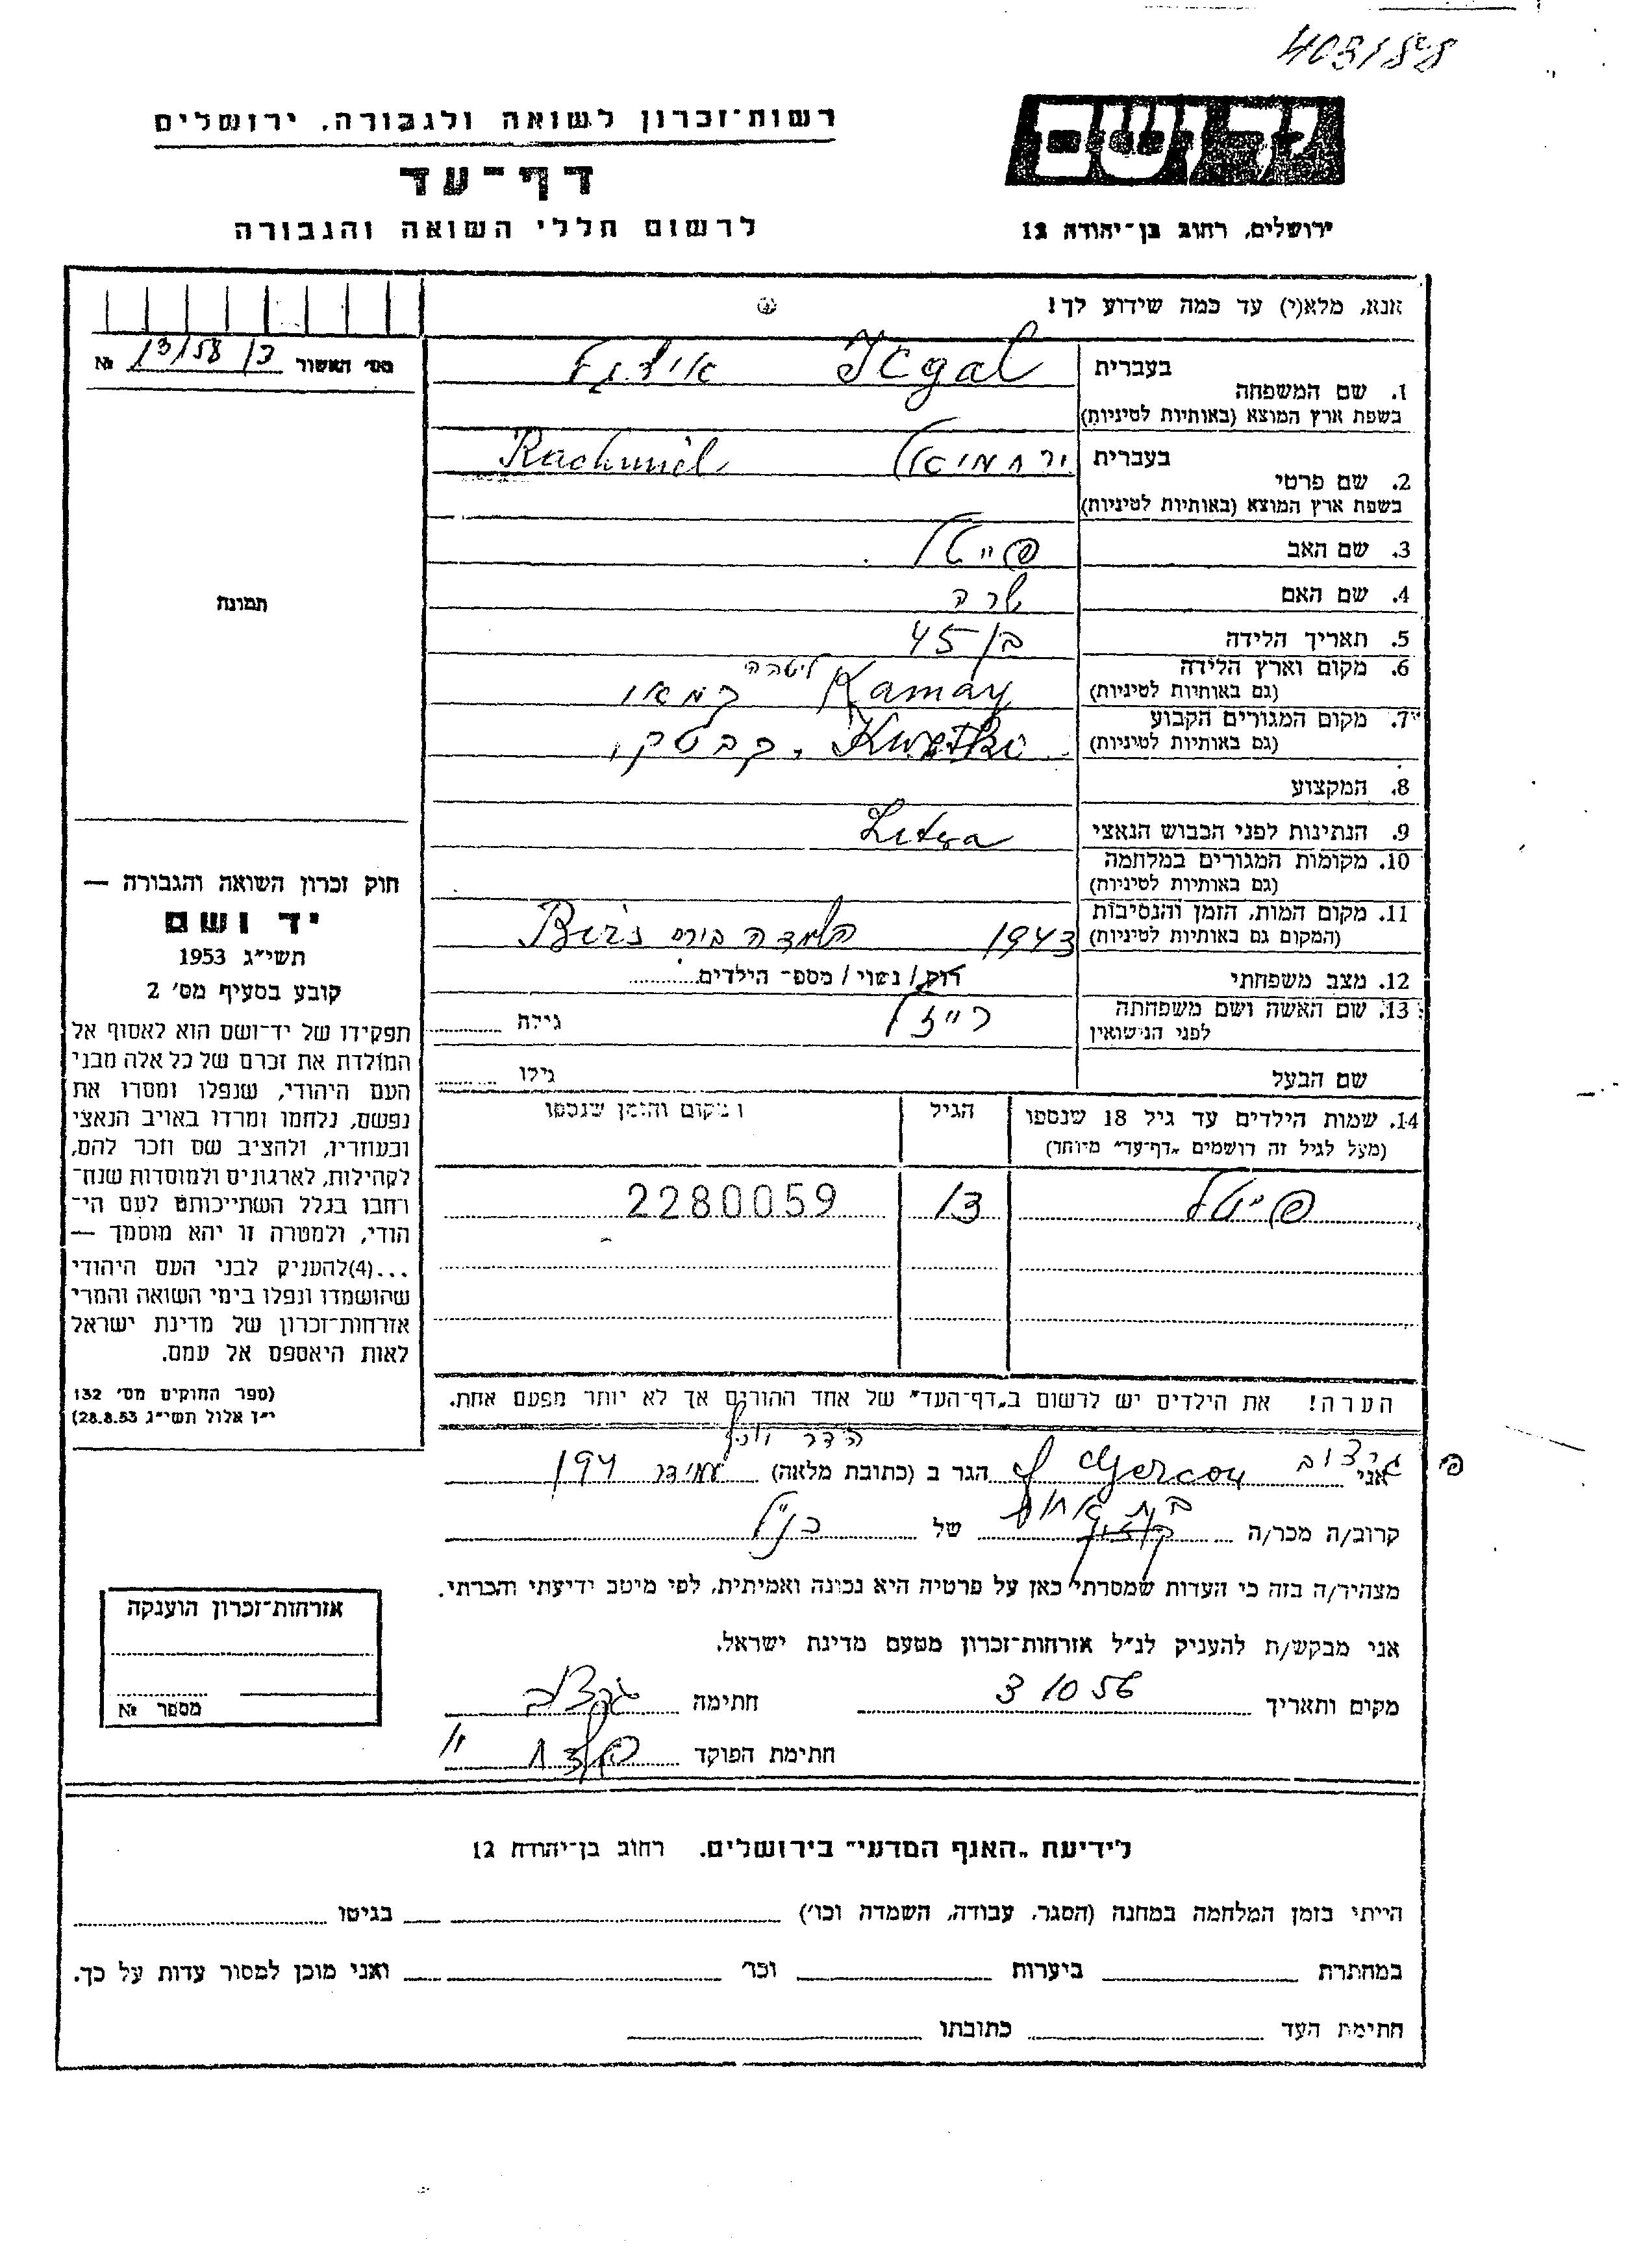 403188
רשות־זכרון לשואה ולגבורה, ירושלים
יד ושם
דף־עד
לרשום חללי השואה והגבורה
ירושלים, רחוב בן־יהודה 12
אנא, מלא(י) עד כמה שידוע לך!
מס׳ האשור №
בעברית
1. שם המשפחה
בשפת ארץ המוצא (באותיות לטיניות)
בעברית ירחמיאל Rachmiel
2. שם פרטי
בשפת ארץ המוצא (באותיות לטיניות)
3. שם האב פייטל
4. שם האם שרה
5. תאריך הלידה בן 45
6. מקום וארץ הלידה Kamay קמאי ליטה
(גם באותיות לטיניות)
7. מקום המגורים הקבוע
(גם באותיות לטיניות)
8. המקצוע
9. הנתינות לפני הכבוש הנאצי Litwa
10. מקומות המגורים במלחמה
(גם באותיות לטיניות)
11. מקום המות, הזמן והנסיבות 1943
(המקום גם באותיות לטיניות)
12. מצב משפחתי רווק / נשוי / מספ׳ הילדים
13. שם האשה ושם משפחתה גילה
לפני הנישואין
שם הבעל גילו
14. שמות הילדים עד גיל 18 שנספו הגיל מקום והזמן שנספו
(מעל לגיל זה רושמים „דף־עד״ מיוחד)
פייטל 13 2280059
הערה! את הילדים יש לרשום ב„דף־העד״ של אחד ההורים אך לא יותר מפעם אחת.
תמונה
חוק זכרון השואה והגבורה —
יד ושם
תשי״ג 1953
קובע בסעיף מס׳ 2
תפקידו של יד־ושם הוא לאסוף אל
המולדת את זכרם של כל אלה מבני
העם היהודי, שנפלו ומסרו את
נפשם, נלחמו ומרדו באויב הנאצי
ובעוזריו, ולהציב שם וזכר להם,
לקהילות, לארגונים ולמוסדות שנח־
רחבו בגלל השתייכותם לעם הי־
הודי, ולמטרה זו יהא מוסמך —
...(4)להעניק לבני העם היהודי
שהושמדו ונפלו בימי השואה והמרי
אזרחות־זכרון של מדינת ישראל
לאות היאספם אל עמם.
(ספר החוקים מס׳ 132
י״ז אלול תשי״ג 28.8.53)
אני הגר ב (כתובת מלאה) עמידר 194
קרוב/ה מכר/ה בת אחות של הנ״ל
מצהיר/ה בזה כי העדות שמסרתי כאן על פרטיה היא נכונה ואמיתית, לפי מיטב ידיעתי והכרתי.
אני מבקש/ת להעניק לנ״ל אזרחות־זכרון מטעם מדינת ישראל.
מקום ותאריך 3 10 56 חתימה
חתימת הפוקד
אזרחות־זכרון הוענקה
מספר №
לידיעת „האגף המדעי״ בירושלים. רחוב בן־יהודה 12
הייתי בזמן המלחמה במחנה (הסגר, עבודה, השמדה וכו׳) בגיטו
במחתרת ביערות וכו׳ ואני מוכן למסור עדות על כך.
חתימת העד כתובתו